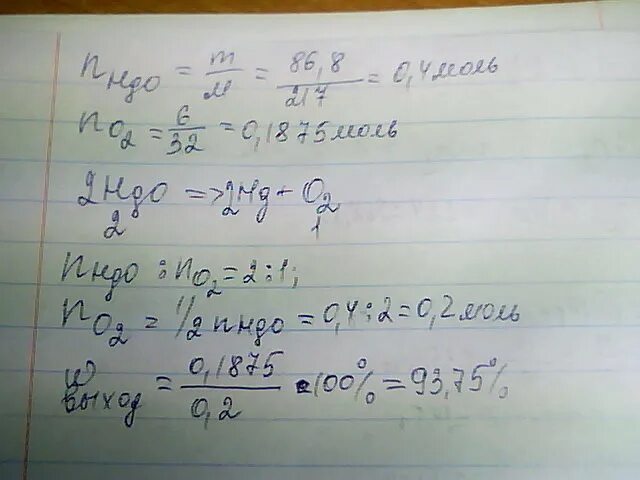 n HgO = m/M = 86,8/217 = 0,4 моль
n O₂ = 6/32 = 0,1875 моль
2HgO => 2Hg + O₂
2 1
n HgO : n O₂ = 2:1;
n O₂ = 1/2 n HgO = 0,4 : 2 = 0,2 моль
W выход = 0,1875/0,2 · 100% = 93,75%